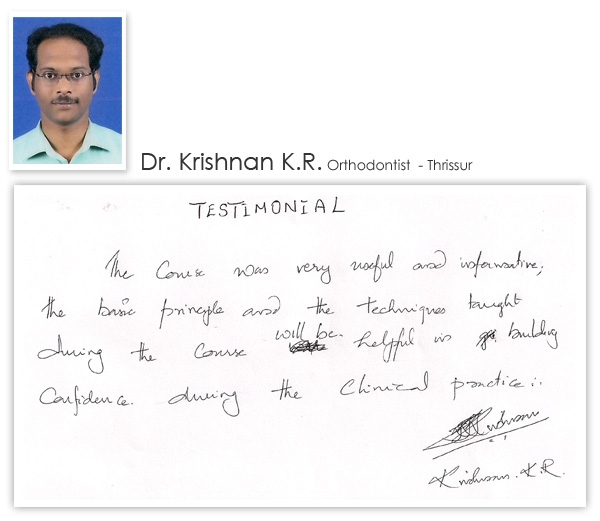 Dr. Krishnan K.R. Orthodontist - Thrissur
TESTIMONIAL
The Course was very useful and informative,
the basic principle and the techniques taught
during the Course will be helpful in building
Confidence during the Clinical practice.
Krishnan
Krishnan. K.R.